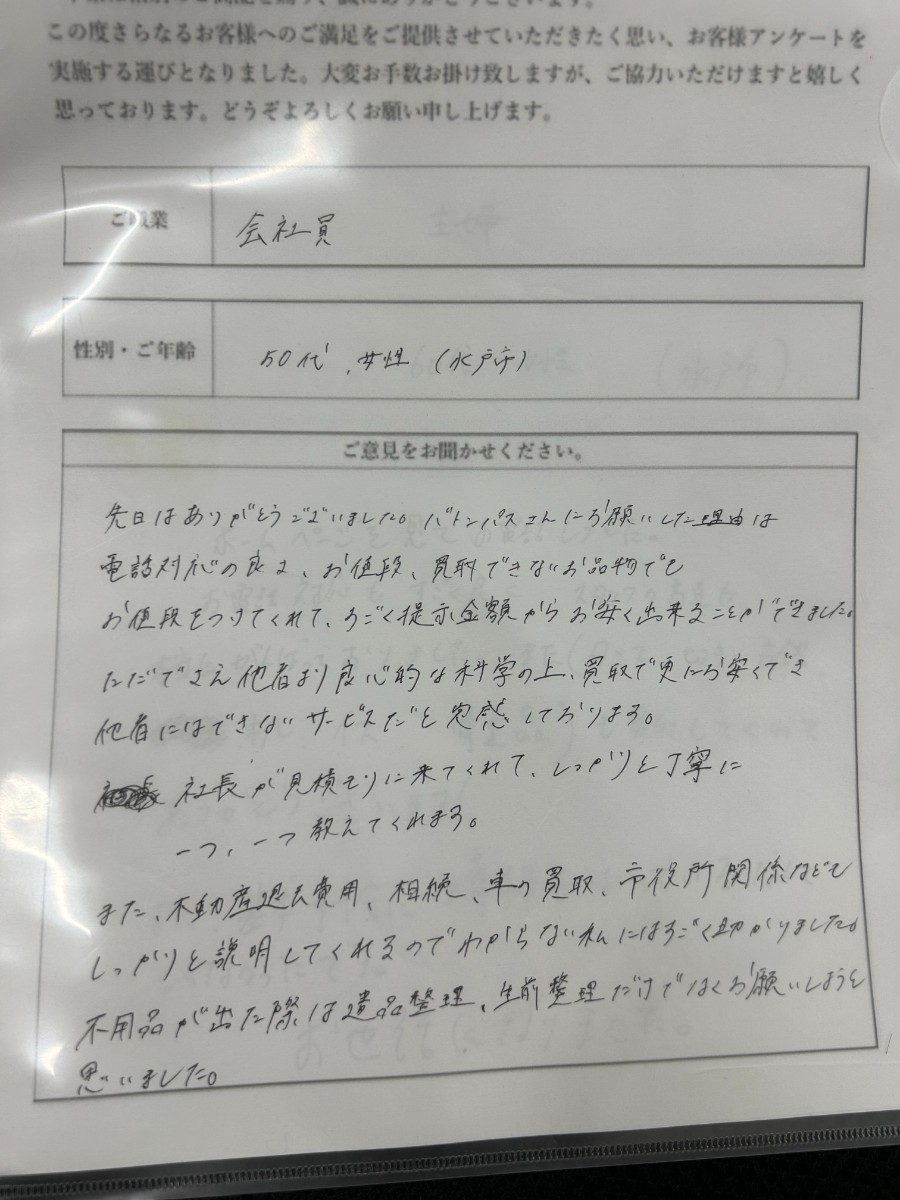 この度さらなるお客様へのご満足をご提供させていただきたく思い、お客様アンケートを
実施する運びとなりました。大変お手数お掛け致しますが、ご協力いただけますと嬉しく
思っております。どうぞよろしくお願い申し上げます。
ご職業
会社員
性別・ご年齢
50代、女性 (水戸市)
ご意見をお聞かせください。
先日はありがとうございました。バトンパスさんにお願いした理由は
電話対応の良さ、お値段、買取できないお品物でも
お値段をつけてくれて、すごく提示金額からお安く出来ることができました。
ただでさえ他者より良心的な科学の上、買取で更にお安くでき
他者にはできないサービスだと実感しております。
社長が見積もりに来てくれて、しっかりと丁寧に
一つ、一つ教えてくれます。
また、不動産退去費用、相続、車の買取、市役所関係なども
しっかりと説明してくれるのでわからない私にはすごく助かりました。
不用品が出た際は遺品整理、生前整理だけではなくお願いしようと
思いました。